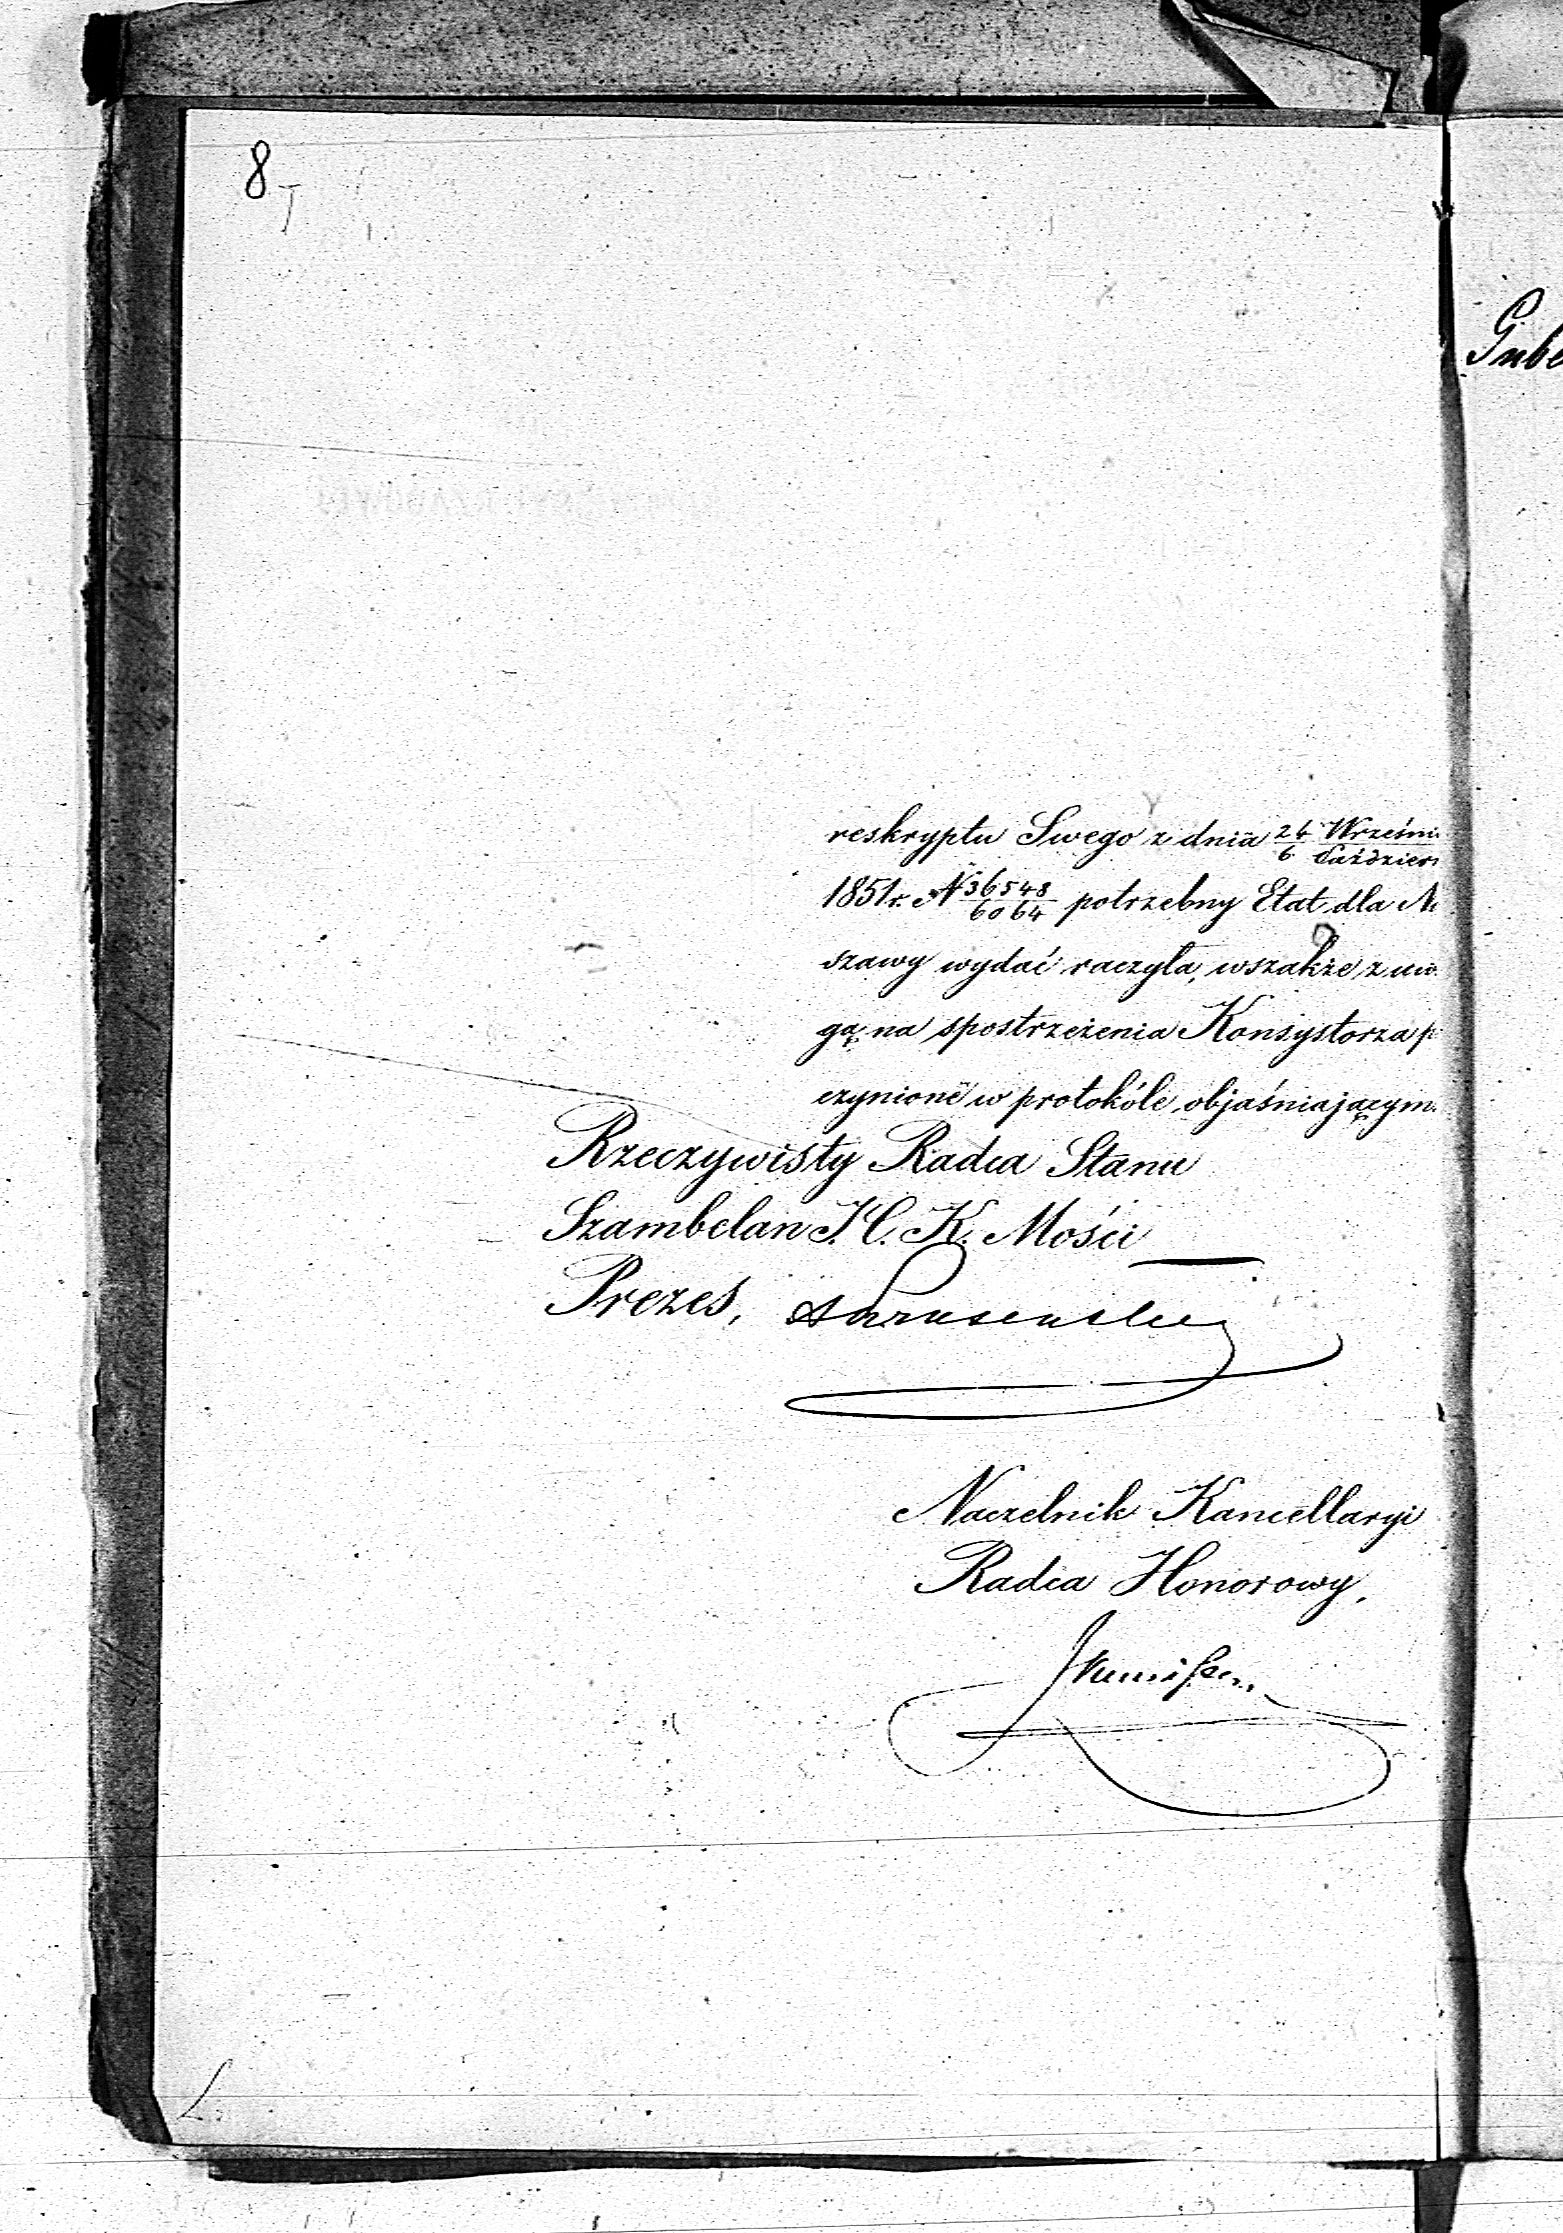 8
reskryptu Swego z dnia 24/6 Wrześni Paździer
1851 r. N 36548/6064 potrzebny Etat dla M
szawy wydać raczyła, wszakże z uw
gą na spostrzeżenia Konsystorza p
czynione w protokóle objaśniającym.
Rzeczywisty Radca Stanu
Szambelan J. C. K. Mości
Prezes,
Naczelnik Kancellaryi
Radca Honorowy,
Gube